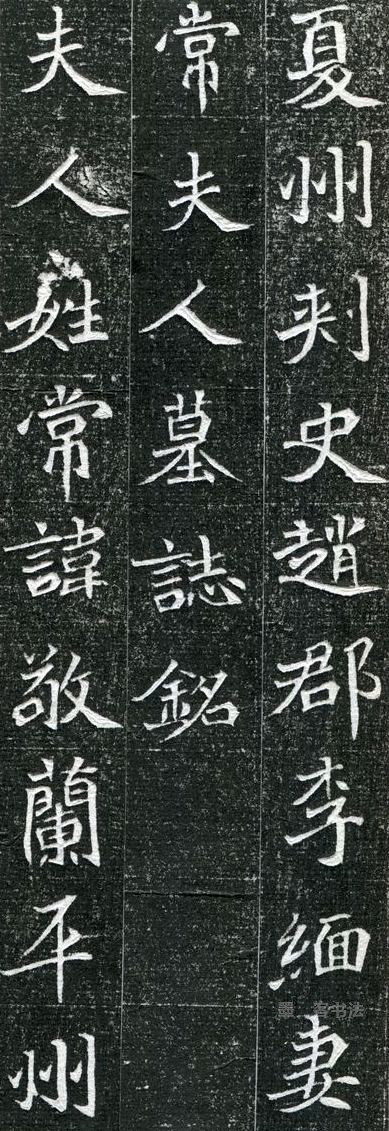 夏州刺史趙郡李緬妻
常夫人墓誌銘
夫人姓常諱敬蘭平州